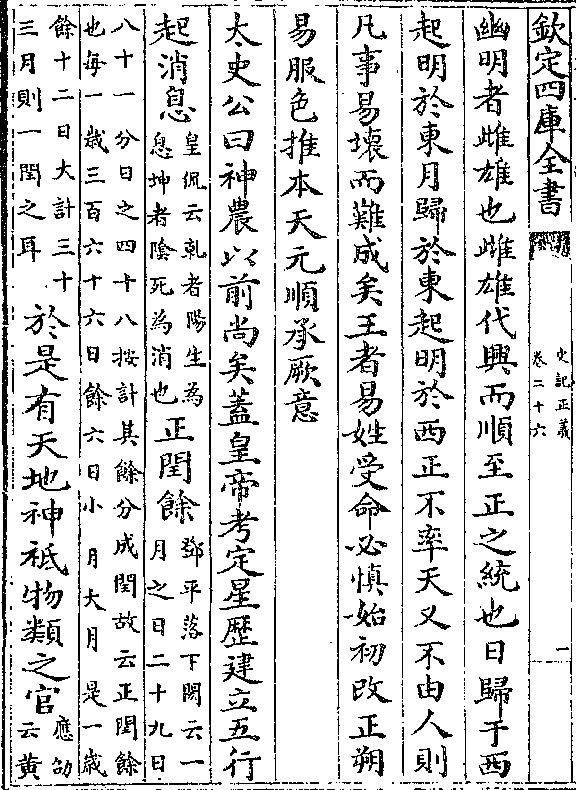 欽定四庫全書
史記正義
卷二十六
一
幽明者雌雄也雌雄代興而順至正之統也日歸于西
起明於東月歸於東起明於西正不率天又不由人則
凡事易壞而難成矣王者易姓受命必慎始初改正朔
易服色推本天元順承厥意
太史公曰神農以前尚矣蓋皇帝考定星歷建立五行
起消息皇侃云乹者陽生為息坤者陰死為消也正閏餘鄧平落下閎云一月之日二十九日
八十一分日之四十八按計其餘分成閏故云正閏餘
也每一歲三百六十六日餘六日小月大月是一歲
餘十二日大計三十三月則一閏之耳於是有天地神祇物類之官應劭云黃